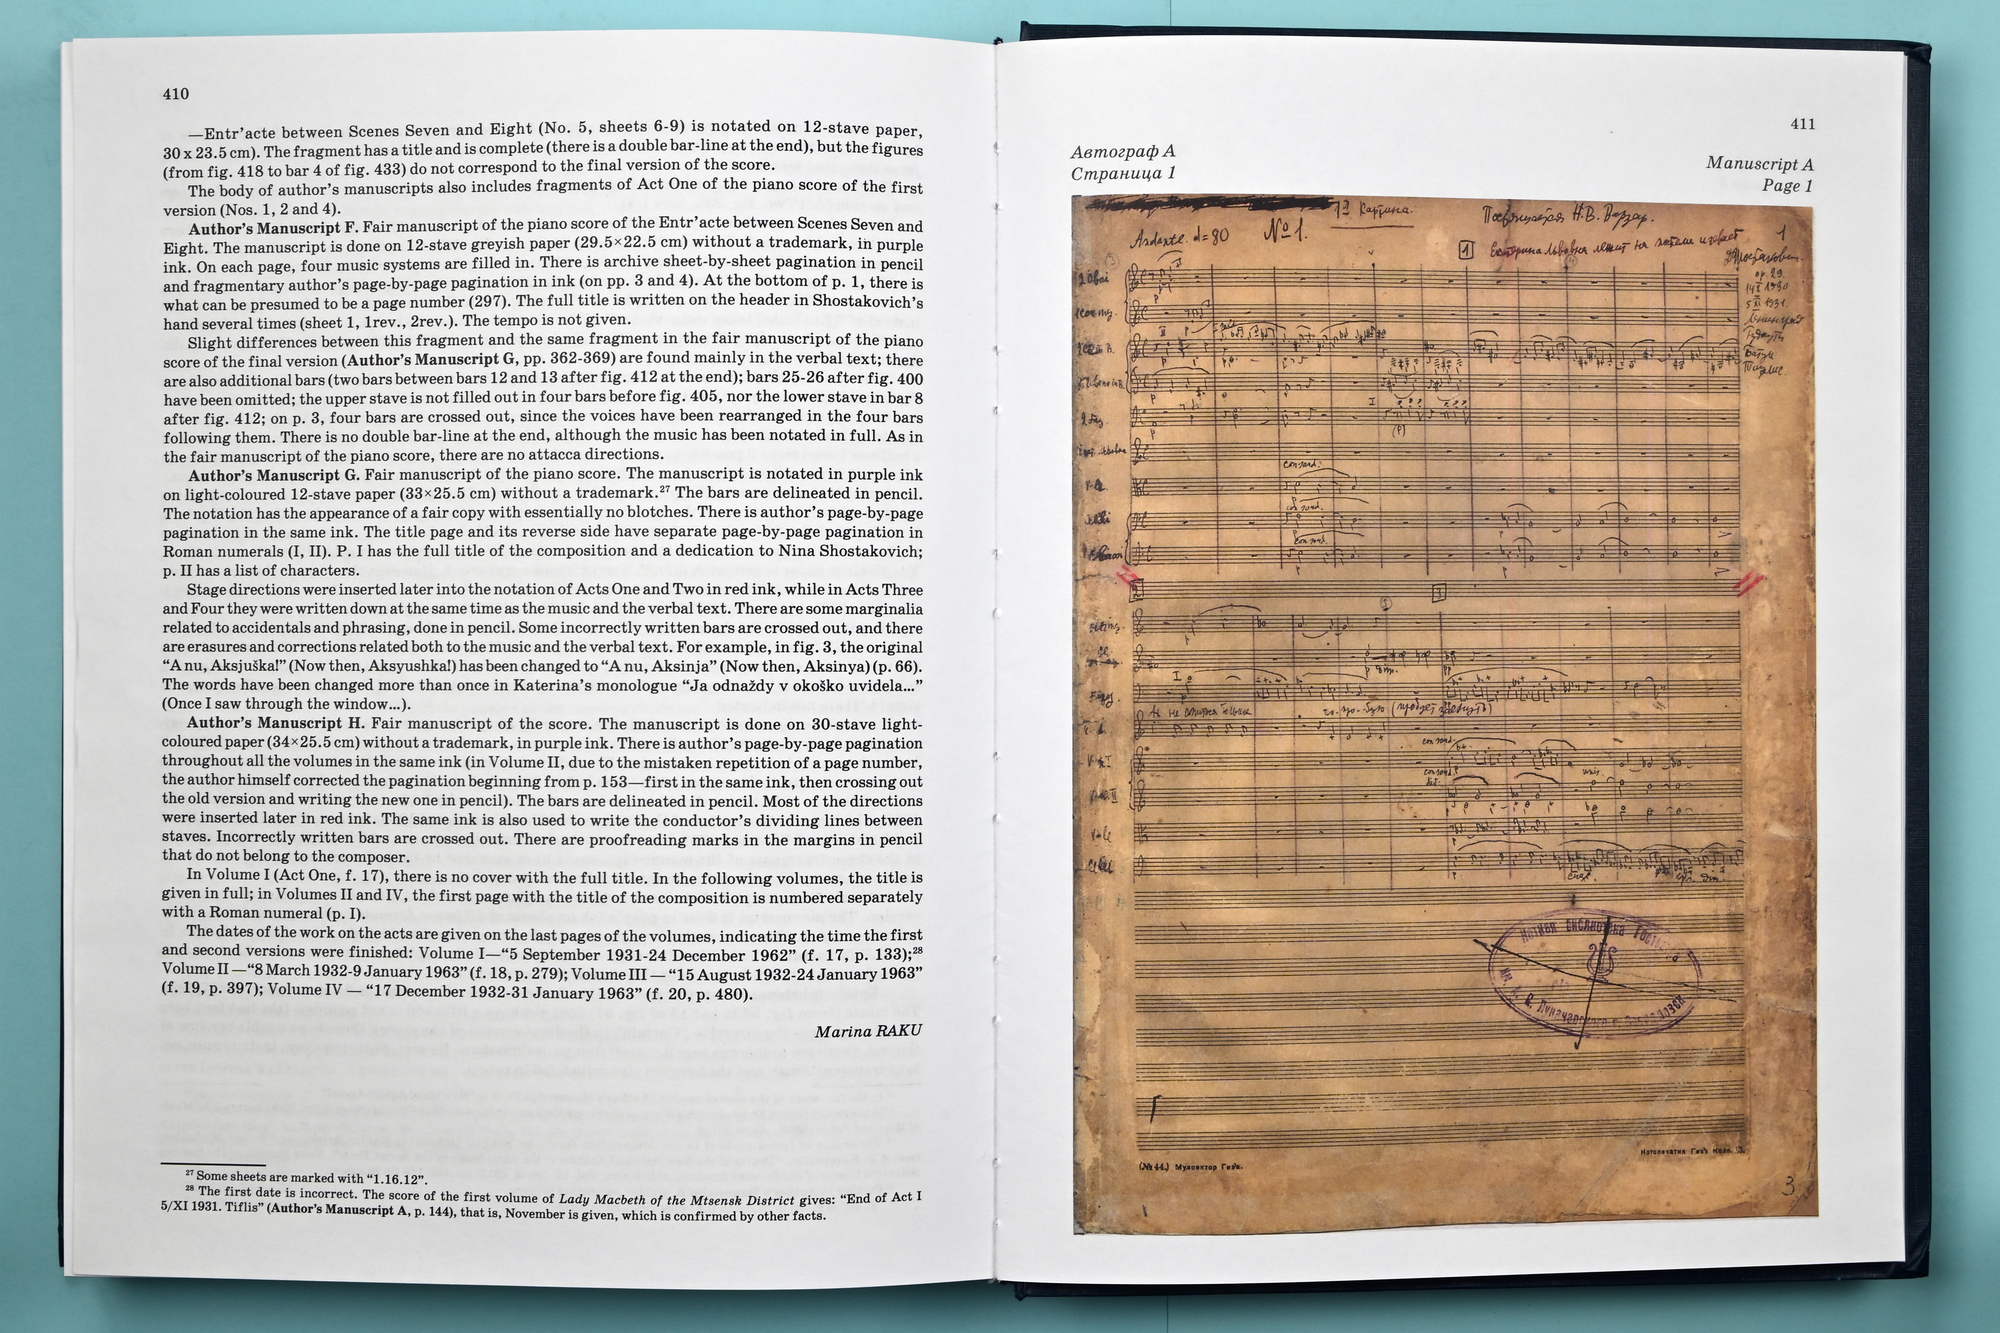 410
—Entr’acte between Scenes Seven and Eight (No. 5, sheets 6-9) is notated on 12-stave paper,
30 x 23.5 cm). The fragment has a title and is complete (there is a double bar-line at the end), but the figures
(from fig. 418 to bar 4 of fig. 433) do not correspond to the final version of the score.
The body of author’s manuscripts also includes fragments of Act One of the piano score of the first
version (Nos. 1, 2 and 4).
Author’s Manuscript F. Fair manuscript of the piano score of the Entr’acte between Scenes Seven and
Eight. The manuscript is done on 12-stave greyish paper (29.5×22.5 cm) without a trademark, in purple
ink. On each page, four music systems are filled in. There is archive sheet-by-sheet pagination in pencil
and fragmentary author’s page-by-page pagination in ink (on pp. 3 and 4). At the bottom of p. 1, there is
what can be presumed to be a page number (297). The full title is written on the header in Shostakovich’s
hand several times (sheet 1, 1rev., 2rev.). The tempo is not given.
Slight differences between this fragment and the same fragment in the fair manuscript of the piano
score of the final version (Author’s Manuscript G, pp. 362-369) are found mainly in the verbal text; there
are also additional bars (two bars between bars 12 and 13 after fig. 412 at the end); bars 25-26 after fig. 400
have been omitted; the upper stave is not filled out in four bars before fig. 405, nor the lower stave in bar 8
after fig. 412; on p. 3, four bars are crossed out, since the voices have been rearranged in the four bars
following them. There is no double bar-line at the end, although the music has been notated in full. As in
the fair manuscript of the piano score, there are no attacca directions.
Author’s Manuscript G. Fair manuscript of the piano score. The manuscript is notated in purple ink
on light-coloured 12-stave paper (33×25.5 cm) without a trademark.²⁷ The bars are delineated in pencil.
The notation has the appearance of a fair copy with essentially no blotches. There is author’s page-by-page
pagination in the same ink. The title page and its reverse side have separate page-by-page pagination in
Roman numerals (I, II). P. I has the full title of the composition and a dedication to Nina Shostakovich;
p. II has a list of characters.
Stage directions were inserted later into the notation of Acts One and Two in red ink, while in Acts Three
and Four they were written down at the same time as the music and the verbal text. There are some marginalia
related to accidentals and phrasing, done in pencil. Some incorrectly written bars are crossed out, and there
are erasures and corrections related both to the music and the verbal text. For example, in fig. 3, the original
“A nu, Aksjuška!” (Now then, Aksyushka!) has been changed to “A nu, Aksinja” (Now then, Aksinya) (p. 66).
The words have been changed more than once in Katerina’s monologue “Ja odnaždy v okoško uvidela...”
(Once I saw through the window...).
Author’s Manuscript H. Fair manuscript of the score. The manuscript is done on 30-stave light-
coloured paper (34×25.5 cm) without a trademark, in purple ink. There is author’s page-by-page pagination
throughout all the volumes in the same ink (in Volume II, due to the mistaken repetition of a page number,
the author himself corrected the pagination beginning from p. 153—first in the same ink, then crossing out
the old version and writing the new one in pencil). The bars are delineated in pencil. Most of the directions
were inserted later in red ink. The same ink is also used to write the conductor’s dividing lines between
staves. Incorrectly written bars are crossed out. There are proofreading marks in the margins in pencil
that do not belong to the composer.
In Volume I (Act One, f. 17), there is no cover with the full title. In the following volumes, the title is
given in full; in Volumes II and IV, the first page with the title of the composition is numbered separately
with a Roman numeral (p. I).
The dates of the work on the acts are given on the last pages of the volumes, indicating the time the first
and second versions were finished: Volume I—“5 September 1931-24 December 1962” (f. 17, p. 133);²⁸
Volume II —“8 March 1932-9 January 1963” (f. 18, p. 279); Volume III — “15 August 1932-24 January 1963”
(f. 19, p. 397); Volume IV — “17 December 1932-31 January 1963” (f. 20, p. 480).
Marina RAKU
²⁷ Some sheets are marked with “1.16.12”.
²⁸ The first date is incorrect. The score of the first volume of Lady Macbeth of the Mtsensk District gives: “End of Act I
5/XI 1931. Tiflis” (Author’s Manuscript A, p. 144), that is, November is given, which is confirmed by other facts.
411
Автограф А
Страница 1
Manuscript A
Page 1
1я картина.
Посвящается Н.В. Варзар.
Andante. = 80
№ 1.
1
1
Екатерина Львовна лежит на
op. 29.
1930
1931.
con sord.
con sord.
con sord.
3
con sord.
con sord.
(№ 44.) Музсектор Гиз'а.
Нотопечатня Гиз'а
3